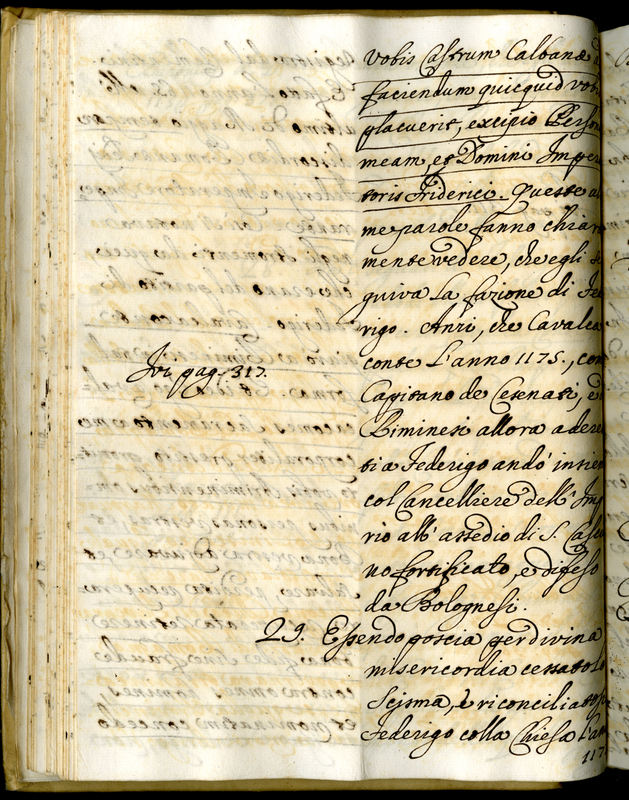 vobis Castrum Calbane
faciendum quicquid vob
placuerit, excipio Person
meam, et Domini Impera
toris Friderici. Queste ul
me parole fanno chiara
mente vedere, che egli se
guiva la fazione di Fede
rigo. Anzi, che Cavalca
conte l'anno 1175., com
Capitano de Cesenati, e
Riminesi allora aderen
ti a Federigo andò insiem
col Cancelliere dell'Impe
rio all'assedio di S. Cascia
no fortificato, e difeso
da Bolognesi.
Ivi pag. 317.
29. Essendo poscia per divina
misericordia cessato lo
Scisma, e riconciliatosi
Federigo colla Chiesa l'an
117